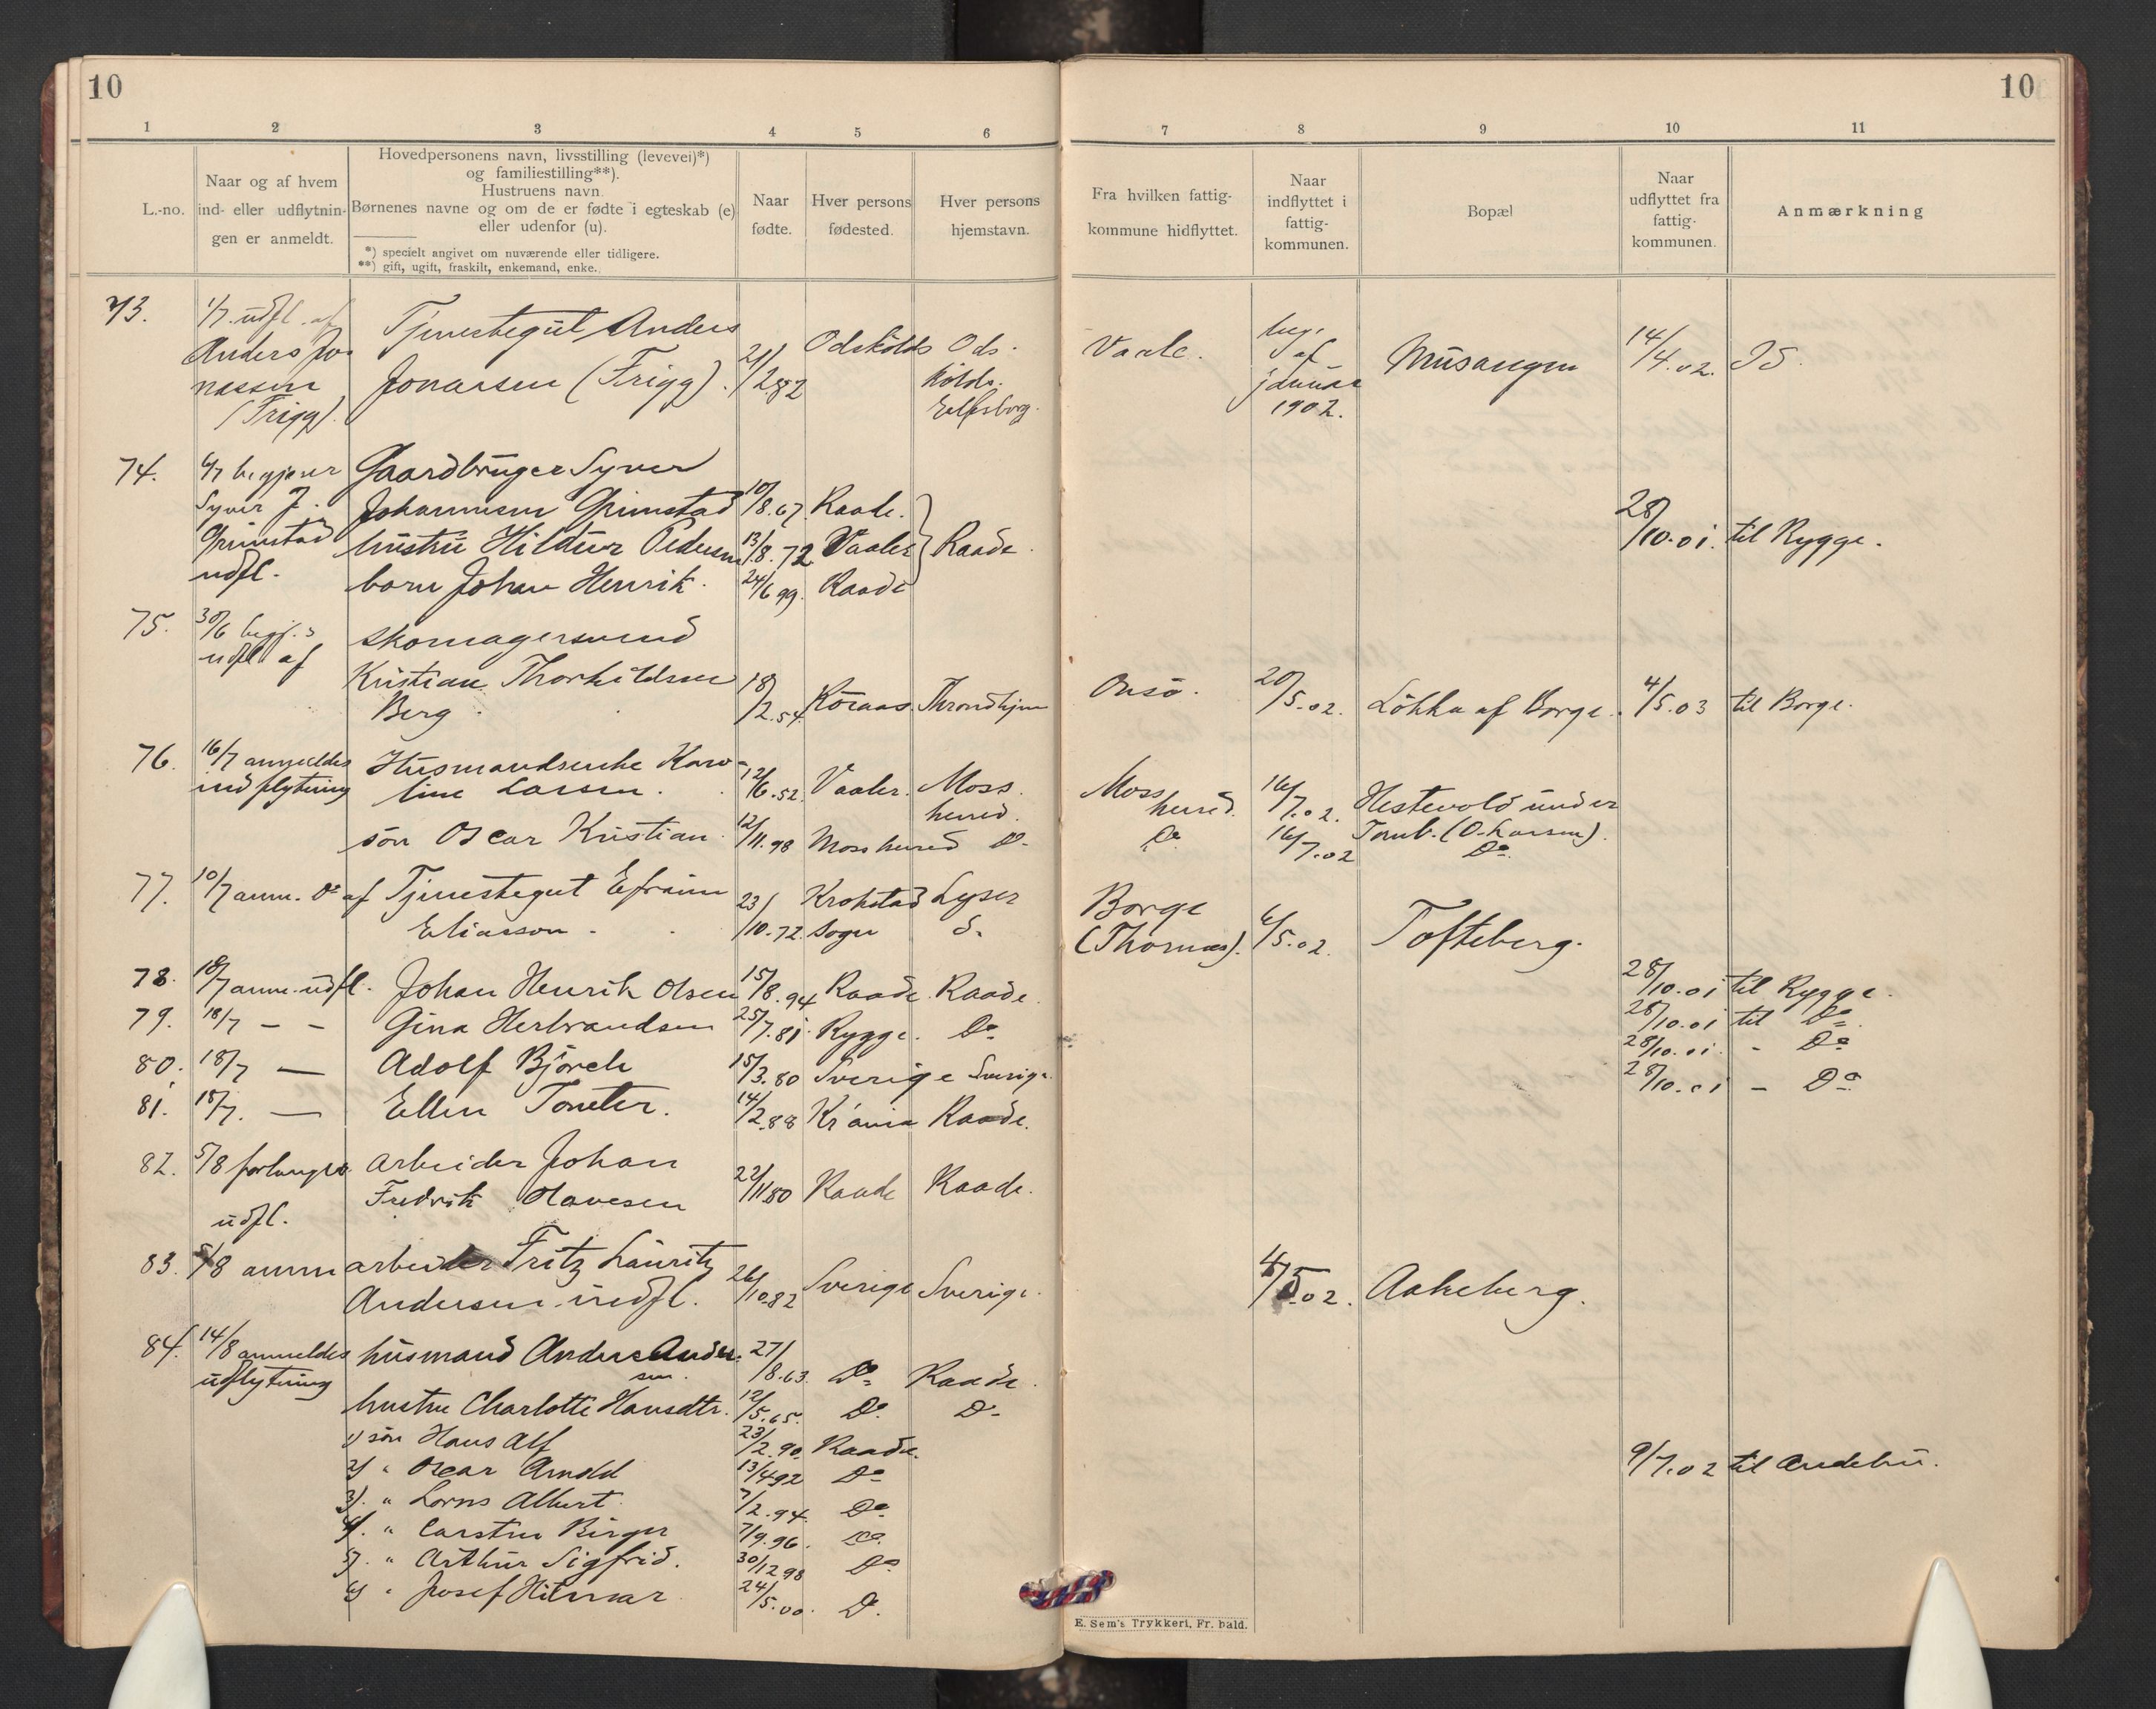 10
10
1 2 3 4 5 6 7 8 9 10 11
L.-no.
Naar og af hvem
ind- eller udflytnin-
gen er anmeldt.
Hovedpersonens navn, livsstilling (levevei)*)
og familiestilling**).
Hustruens navn.
Børnenes navne og om de er fødte i egteskab (e)
eller udenfor (u).
*) specielt angivet om nuværende eller tidligere.
**) gift, ugift, fraskilt, enkemand, enke.
Naar
fødte.
Hver persons
fødested.
Hver persons
hjemstavn.
Fra hvilken fattig-
kommune hidflyttet.
Naar
indflyttet i
fattig-
kommunen.
Bopæl
Naar
udflyttet fra
fattig-
kommunen.
Anmærkning
73.
1/7 udfl. af
Anders Jo-
nassen
(Frigg).
Tjenestegut Anders
Jonassen (Frigg).
21/2 82
Odskölds
Ods-
kölds.
Elfsborg.
Vaale.
beg.
af
januar
1902.
Musangen
14/4.02.
74.
6/7 begjærer
Syver J.
Grimstad
udfl.
Gaardbruger Syver
Johannesen Grimstad 10/8.67. Raade.
hustru Hildur Pedersen 13/8.72 Vaaler Raade.
barn Johan Henrik. 24/6 99. Raade
28/10.01. til Rygge.
75.
30/6 begj.s
udfl af
Skomagersvend
Kristian Thorkildsen
Berg
18/2.54. Röraas. Throndhjem
Onsö. 20/5.02. Lökka af Borge. 4/5.03 til Borge.
76.
16/7 anmeldes
indflytning
Husmandsenke Karo-
line Larsen. 12/6.52. Vaaler. Moss
herred.
sön Oscar Kristian. 12/11.98 Moss herred Do
Moss
herred. 16/7.02. Hestevold under
Do 16/7.02 Tomb. (O. Larsen).
Do
77. 10/7 anm. Do af Tjenestegut Efraim
Eliasson 23/10.72. Krokstad
Sogn
Borge
(Thomas). 6/5.02. Tofteberg.
78. 18/7 anm. udfl. Johan Henrik Olsen 15/8.94 Raade. Raade. 28/10.01 til Rygge.
79. 18/7 — — Gina Herbrandsen 25/7.81. Rygge. Do 28/10.01 til Do
80. 18/7 — Adolf Björck 15/3.80 Sverige Sverige. 28/10.01. - Do
81. 18/7. — Ellen Toneter. 14/2.88 Kr'ania Raade. 28/10.01 — Do
82. 5/8 forlanges
udfl.
arbeider Johan
Fredrik Olavesen 22/11 80 Raade Raade.
83. 5/8 anm arbeider Fritz Lauritz
Andersen indfl. 26/10.82 Sverige Sverige. 4/5.02. Aakeberg.
84. 14/8 anmeldes
udflytning
husmand Anders Ander-
sen. 27/8.63. Do Raade.
hustru Charlotte Hansdtr. 12/5.65. Do Do
1) sön Hans Alf 23/2.90. Raade.
2) " Oscar Arnold 13/4 92 Do
3). " Lorns Albert. 7/2.94. Do
4). " Carsten Birger 7/9.96. Do
5). " Arthur Sigfrid. 30/12 98 Do
6) " Josef Hilmar 24/5.00. Do
9/7.02 til Andebu.
E. Sem's Trykkeri, Fr. hald.